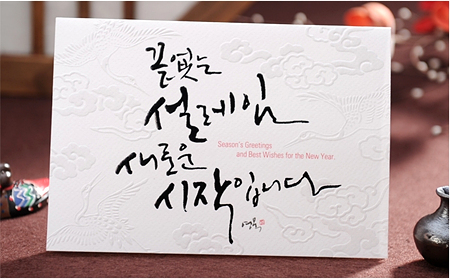 끝없는
설레임
Season's Greetings
and Best Wishes for the New Year.
새로운
시작입니다